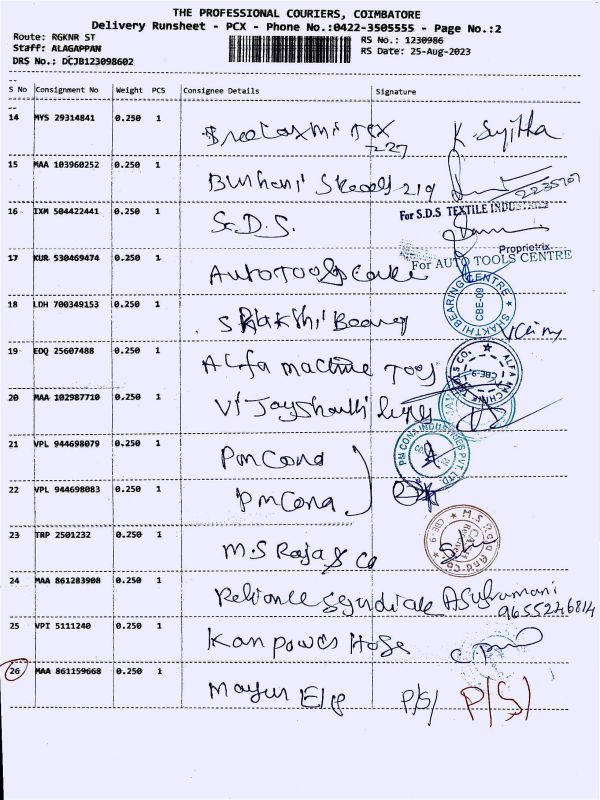 THE PROFESSIONAL COURIERS, COIMBATORE
Delivery Runsheet - PCX - Phone No.:0422-3505555 - Page No.:2
Route: RGKNR ST
RS No.: 1230986
Staff: ALAGAPPAN
RS Date: 25-Aug-2023
DRS No.: DCJB123098602
S No Consignment No Weight PCS Consignee Details Signature
14 MYS 29314841 0.250 1
Sreelaxmi Tex K. Sujitha
227
15 MAA 103960252 0.250 1
Burhani 219
16 IXM 504422441 0.250 1
For S.D.S TEXTILE INDUSTRIES
S.D.S.
Proprietrix
17 KUR 530469474 0.250 1
For AUTO TOOLS CENTRE
Auto Tools
18 LDH 700349153 0.250 1
SHAKTHI BEARING CENTRE CBE-09
Shakthi Bearing
19 EDQ 25607488 0.250 1
Alfa machine Tools
ALFA MACHINE TOOLS CO. CBE-9
20 MAA 102987710 0.250 1
Vijayshanthi
21 VPL 944698079 0.250 1
PM CONA INDUSTRIES PVT LTD
PM Cona
22 VPL 944698083 0.250 1
PM Cona
23 TRP 2501232 0.250 1
M.S. Raja and Co. CBE-9
M.S Raja & Co
24 MAA 861283908 0.250 1
Reliance Syndicate
9655246814
25 VPI 5111240 0.250 1
Kanpower Hose
26 MAA 861159668 0.250 1
Mayur Ele P/S/ P/S/